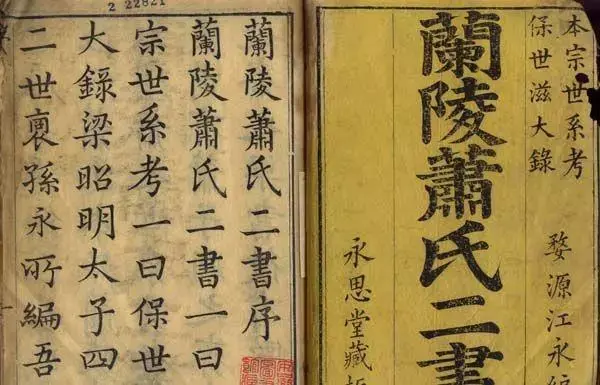 本宗世系考
保世滋大錄
婺源江永編
蘭陵蕭氏二書
永思堂藏板
2 22821
蘭陵蕭氏二書序
蘭陵蕭氏二書一曰
宗世系考一曰保世
大錄梁昭明太子四
二世裔孫永所編吾